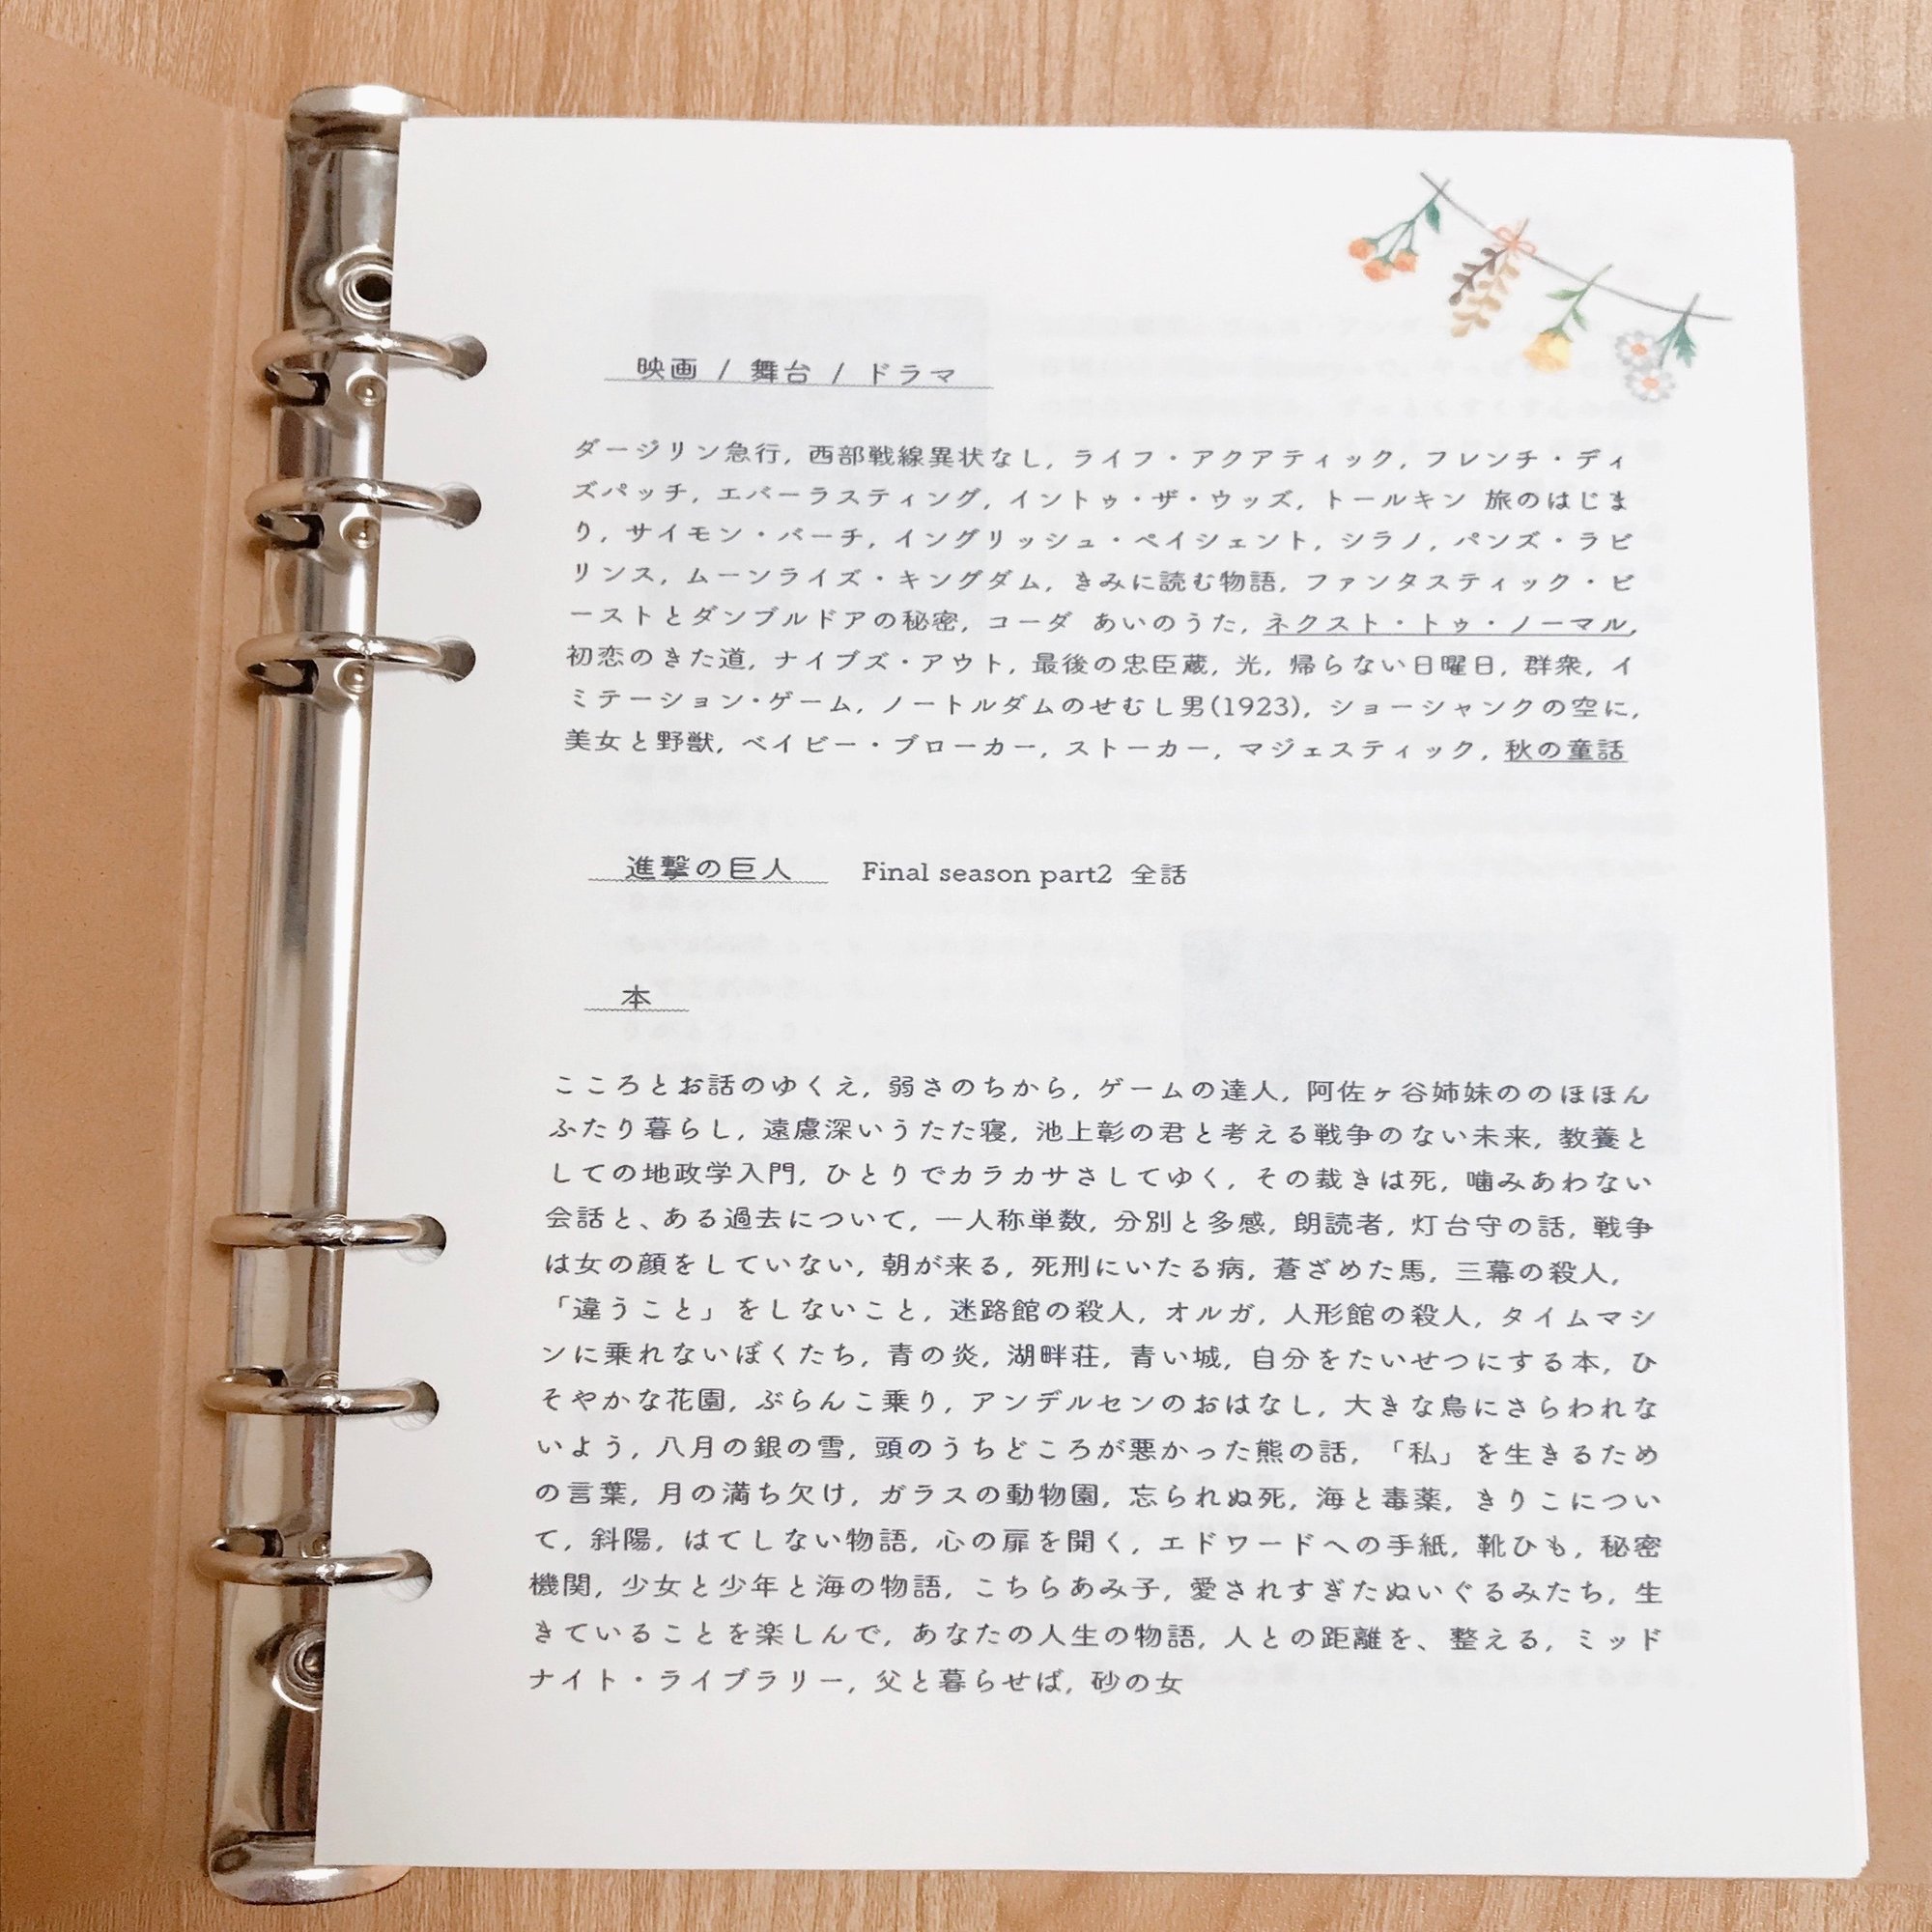 映画 / 舞台 / ドラマ
ダージリン急行, 西部戦線異状なし, ライフ・アクアティック, フレンチ・ディ
ズパッチ, エバーラスティング, イントゥ・ザ・ウッズ, トールキン 旅のはじま
り, サイモン・バーチ, イングリッシュ・ペイシェント, シラノ, パンズ・ラビ
リンス, ムーンライズ・キングダム, きみに読む物語, ファンタスティック・ビ
ーストとダンブルドアの秘密, コーダ あいのうた, ネクスト・トゥ・ノーマル,
初恋のきた道, ナイブズ・アウト, 最後の忠臣蔵, 光, 帰らない日曜日, 群衆, イ
ミテーション・ゲーム, ノートルダムのせむし男(1923), ショーシャンクの空に,
美女と野獣, ベイビー・ブローカー, ストーカー, マジェスティック, 秋の童話
進撃の巨人 Final season part2 全話
本
こころとお話のゆくえ, 弱さのちから, ゲームの達人, 阿佐ヶ谷姉妹ののほほん
ふたり暮らし, 遠慮深いうたた寝, 池上彰の君と考える戦争のない未来, 教養と
しての地政学入門, ひとりでカラカサさしてゆく, その裁きは死, 噛みあわない
会話と、ある過去について, 一人称単数, 分別と多感, 朗読者, 灯台守の話, 戦争
は女の顔をしていない, 朝が来る, 死刑にいたる病, 蒼ざめた馬, 三幕の殺人,
「違うこと」をしないこと, 迷路館の殺人, オルガ, 人形館の殺人, タイムマシ
ンに乗れないぼくたち, 青の炎, 湖畔荘, 青い城, 自分をたいせつにする本, ひ
そやかな花園, ぶらんこ乗り, アンデルセンのおはなし, 大きな鳥にさらわれな
いよう, 八月の銀の雪, 頭のうちどころが悪かった熊の話, 「私」を生きるため
の言葉, 月の満ち欠け, ガラスの動物園, 忘られぬ死, 海と毒薬, きりこについ
て, 斜陽, はてしない物語, 心の扉を開く, エドワードへの手紙, 靴ひも, 秘密
機関, 少女と少年と海の物語, こちらあみ子, 愛されすぎたぬいぐるみたち, 生
きていることを楽しんで, あなたの人生の物語, 人との距離を、整える, ミッド
ナイト・ライブラリー, 父と暮らせば, 砂の女